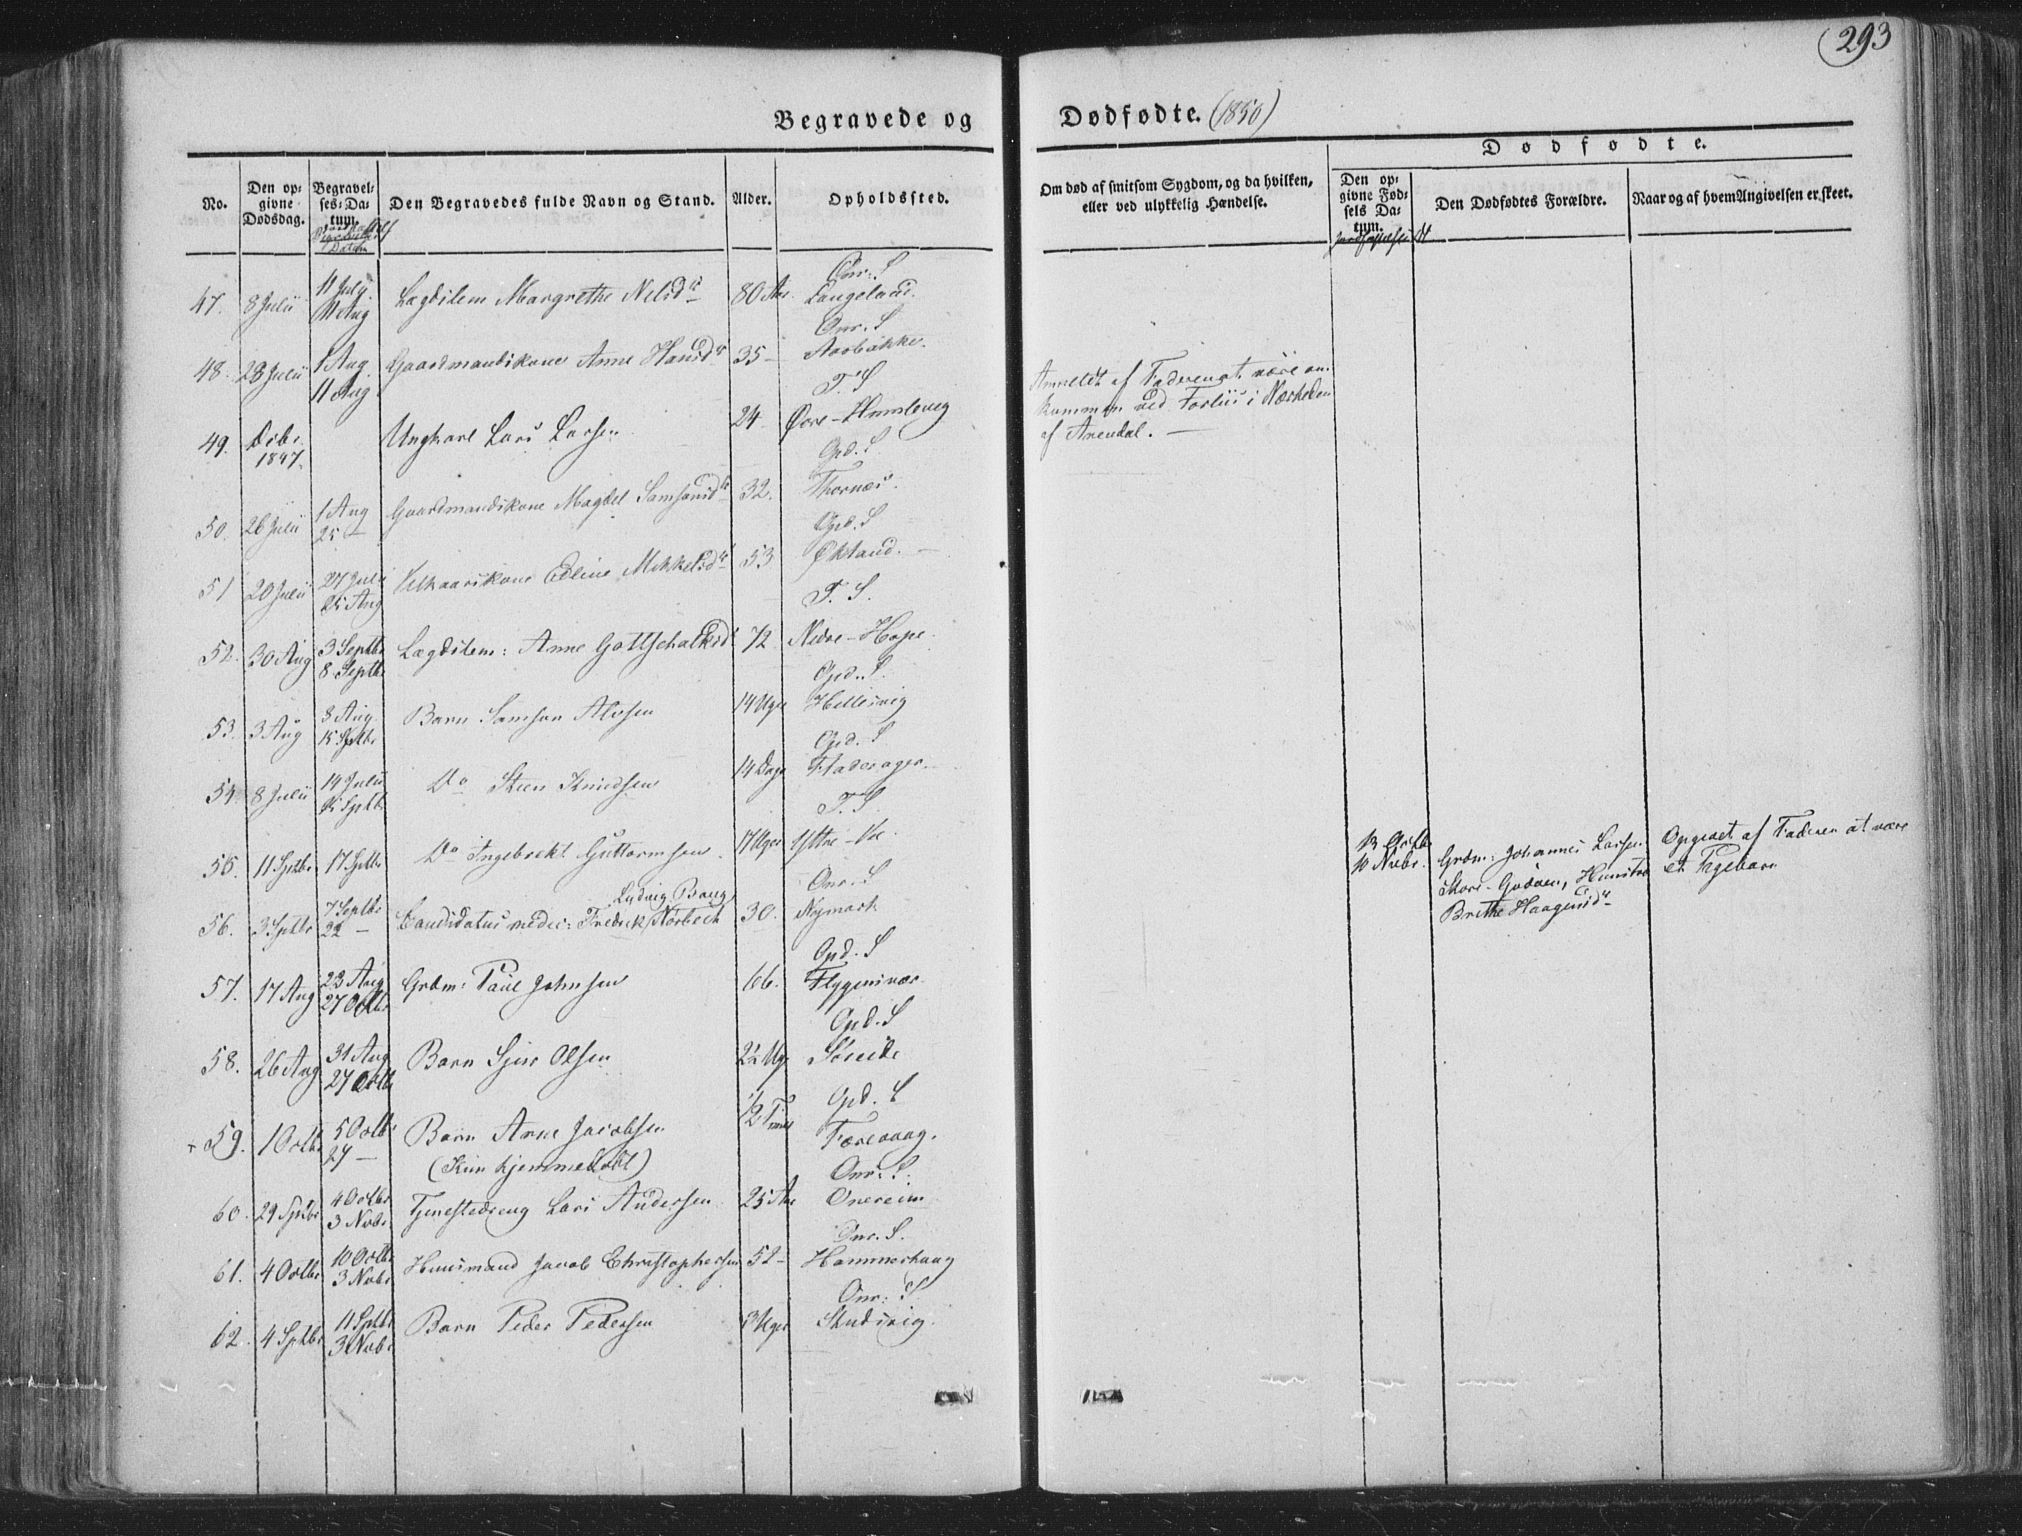 293
Begravede og Dødfødte. (1850)
Dødfødte.
No.
Den opgivne Dødsdag.
Begravelses-Datum.
Den Begravedes fulde Navn og Stand.
Alder.
Opholdssted.
Om død af smitsom Sygdom, og da hvilken, eller ved ulykkelig Hændelse.
Den opgivne Fødsels Datum.
Den Dødfødtes Forældre.
Naar og af hvem Angivelsen er skeet.
47. 8 Julii 11 July 11 Aug Lægdslem Margrethe Nelsdr 80 Aar Onr: S Langeland.
48. 28 Julii 1 Aug. 11 Aug Gaardmandskone Anne Hansdr 35 – Onr. S Aarbakke.
49. Decbr 1847. Ungkarl Lars Larsen 24 T. S Øvre-Humlevig
Anmeldt af Faderen at være om-
kommen ved Forliis i Nærheden
af Arendal. –
50. 26 Julii 1 Aug 25 – Gaardmandskone Magdel Samsonsdr 32. Opd. S Thornæs.
51 20 Julii 27 Juli 25 Aug Velkaarskone Edline Mikkelsdr 53 Opd. S Økland. –
52. 30 Aug 3 Septbr 8 Septbr Lægdslem: Anne Gottschalksdr 72 T. S. Nedre-Hope.
53. 3 Aug 8 Aug. 15 Sptbr Barn Samson Alvsen 14 Uger Opd. S. Hellisvig
54 8 Julii 14 Julii 15 Sptb. Do Steen Knudsen 14 Dage Opd. S Fladerager.
55. 11 Sptbr 17 Sptbr Do Ingebrekt Guttormsen. 17 Uger T. S Ystre-Vee.
13 Octbr
10 Nvbr. Grdm: Johannes Larsen
Store-Gudøen, Hunstro
Brithe Haagensdr
Opgivet af Faderen at være
et Pigebarn
56. 3 Sptbr 7 Septbr 22 – Candidatus medic: Fredrik Ludvig Bang Norbech 30. Onr. S Nymark
57. 17 Aug 23 Aug 27 Octbr Grdm: Paul Johnsen 66. Opd. S Flygensvær
58. 26 Aug 31 Aug 27 Octb Barn Sjur Olsen 22 Ug Opd. S Søreide
59. 1 Octbr 5 Octbr 27 – Barn Arne Jacobsen 1/2 Time Opd. S Færevaag.
(Kun hjemmedøbt)
60. 29 Sptbr 4 Octbr 3 Nvbr. Tjenestedreng Lars Andersen 25 Aar Onr: S. Onereim
61. 4 Octbr 10 Octbr 3 Nvbr Huusmand Jacob Christophersen 52 – Onr. S. Hammerhaug
62. 4 Sptbr 11 Sptbr 3 Nvbr Barn Peder Pedersen 3 Uger Onr: S Skudsvig.